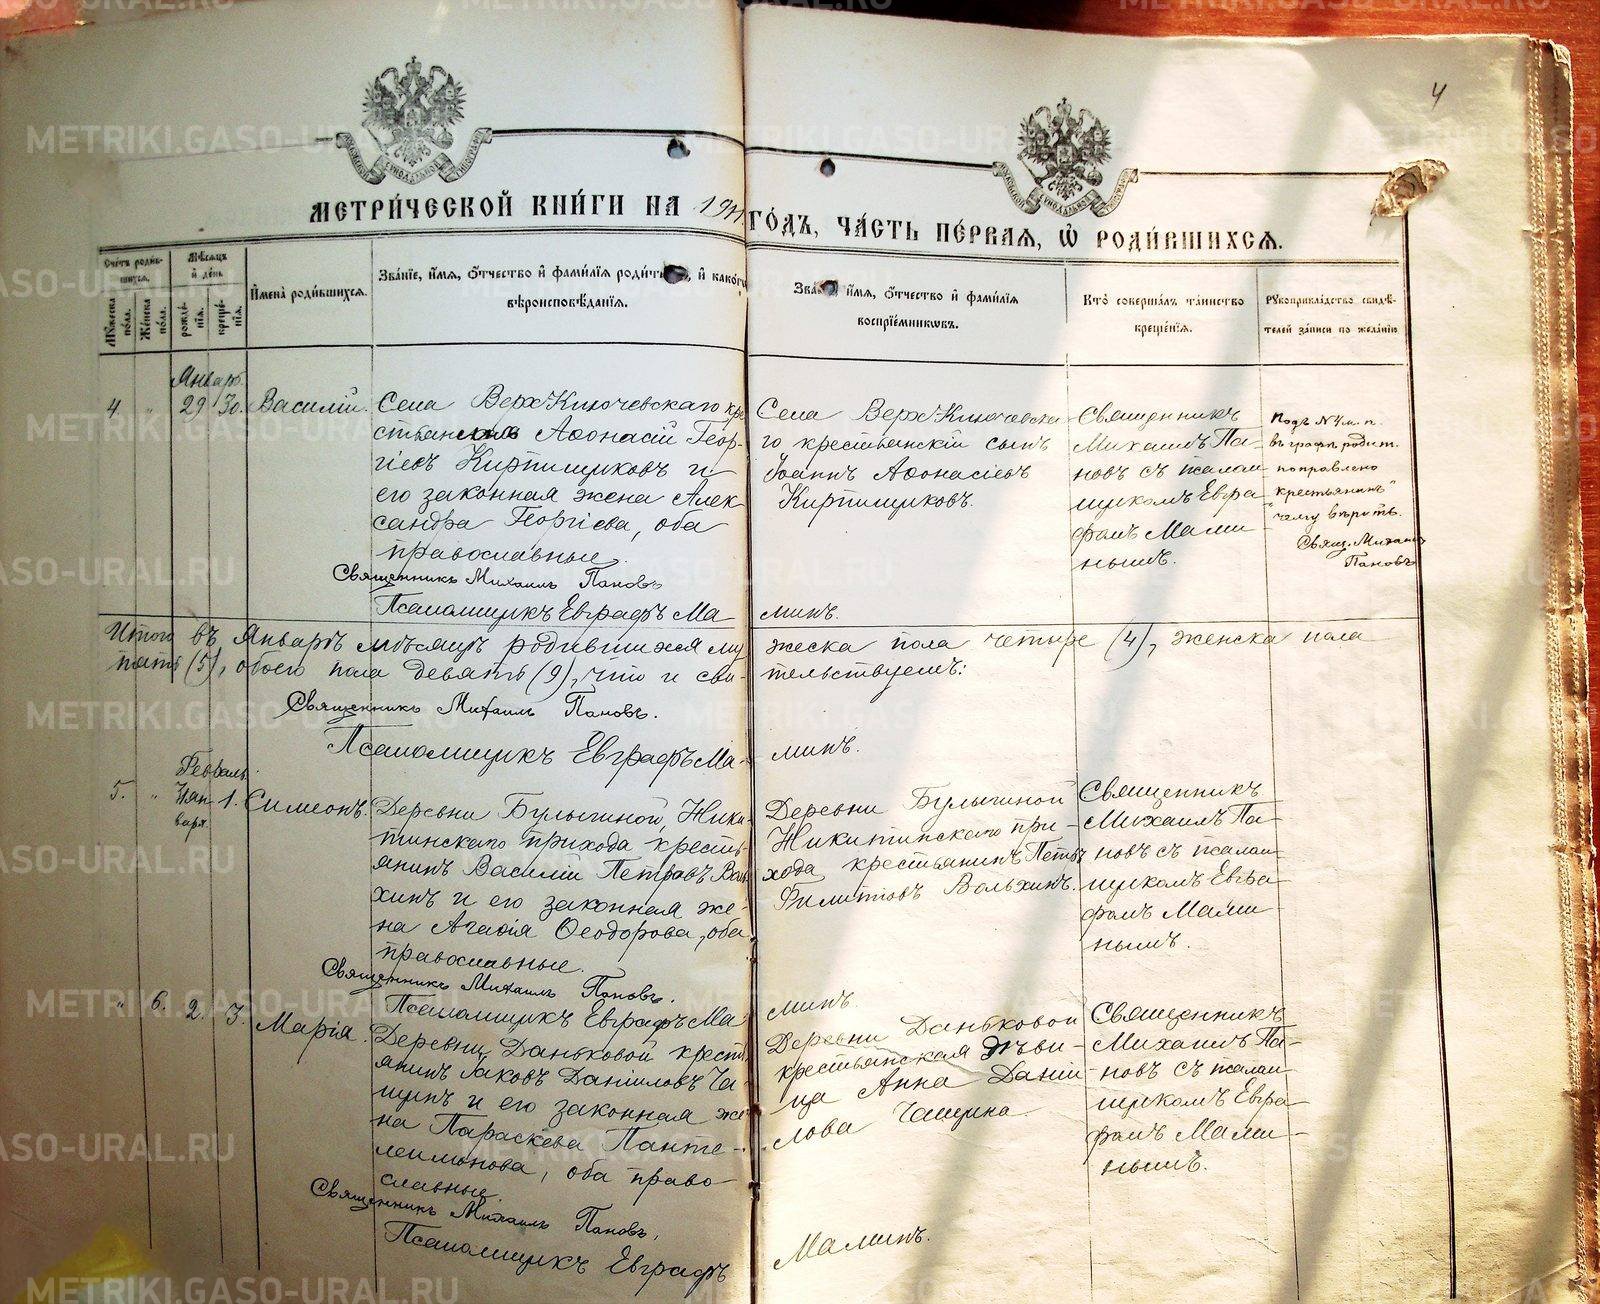 4
МЕТРИ́ЧЕСКОЙ КНИ́ГИ НА 1911 ГО́ДЪ, ЧА́СТЬ ПЕ́РВАЯ, Ѡ РОДИ́ВШИХСЯ.
Сче́тъ роди́вшихся.
Му́жеска по́ла.
Же́нска по́ла.
Мѣ́сяцъ и де́нь
рожде́нїя.
креще́нїя.
И҆мена̀ роди́вшихся.
Зва́нїе, и҆́мя, ѻ҆́тчество и҆ фами́лїя роди́те й, и҆ како́гѡ
вѣроисповѣ́данїя.
Зва́ и҆́мя, ѻ҆́тчество и҆ фами́лїя
воспрїе́мниковъ.
Кто̀ соверша́лъ та́инство
креще́нїя.
Рукоприкла́дство свидѣ́-
телей за́писи по жела́нїю
Январь.
4. " 29 30. Василій.
Села Верхъ-Ключевскаго кре
стьянинъ Аѳонасій Геор-
гіевъ Кирпищиковъ и
его законная жена Алек
сандра Георгіева, оба
православные.
Священникъ Михаилъ Пановъ
Псаломщикъ Евграфъ Ма минъ.
Села Верхъ-Ключевска
го крестьянскій сынъ
Іоаннъ Аѳонасіевъ
Кирпищиковъ.
Священникъ
Михаилъ Па-
новъ съ псалом
щикомъ Евгра
фомъ Мами
нымъ.
Подъ №4 м. п.
въ графѣ родит.
поправлено
"крестьянинъ"
чему вѣрить.
Свящ. Михаилъ
Пановъ
Итого въ Январѣ мѣсяцѣ родившихся му жеска пола четыре (4), женска пола
пять (5), обоего пола девять (9), что и сви- тельствуемъ:
Священникъ Михаилъ Пановъ.
Псаломщикъ Евграфъ Ма- минъ.
Февраль.
5. " Января 1. Симеонъ.
Деревни Булыгиной, Ники-
тинскаго прихода кресть-
янинъ Василій Петровъ Воль
хинъ и его законная же-
на Агаѳія Ѳеодорова, оба
православные.
Священникъ Михаилъ Пановъ.
Псаломщикъ Евграфъ Ма минъ.
Деревни Булыгиной
Никитинскаго при-
хода крестьянинъ Петръ
Филиповъ Вольхинъ.
Священникъ
Михаилъ Па-
новъ съ псалом-
щикомъ Евгра-
фомъ Мами-
нымъ.
" 6. 2. 3. Марія.
Деревни Даньковой кресть
янинъ Іаковъ Даніиловъ Ча-
щинъ и его законная же
на Параскева Панте-
леимонова, оба право-
славные.
Священникъ Михаилъ Пановъ,
Псаломщикъ Евграфъ Маминъ.
Деревни Даньковой
крестьянская дѣви-
ца Анна Даніи-
лова Чащина.
Священникъ
Михаилъ Па-
новъ съ псалом-
щикомъ Евгра-
фомъ Мами-
нымъ.
METRIKI.GASO-URAL.RU